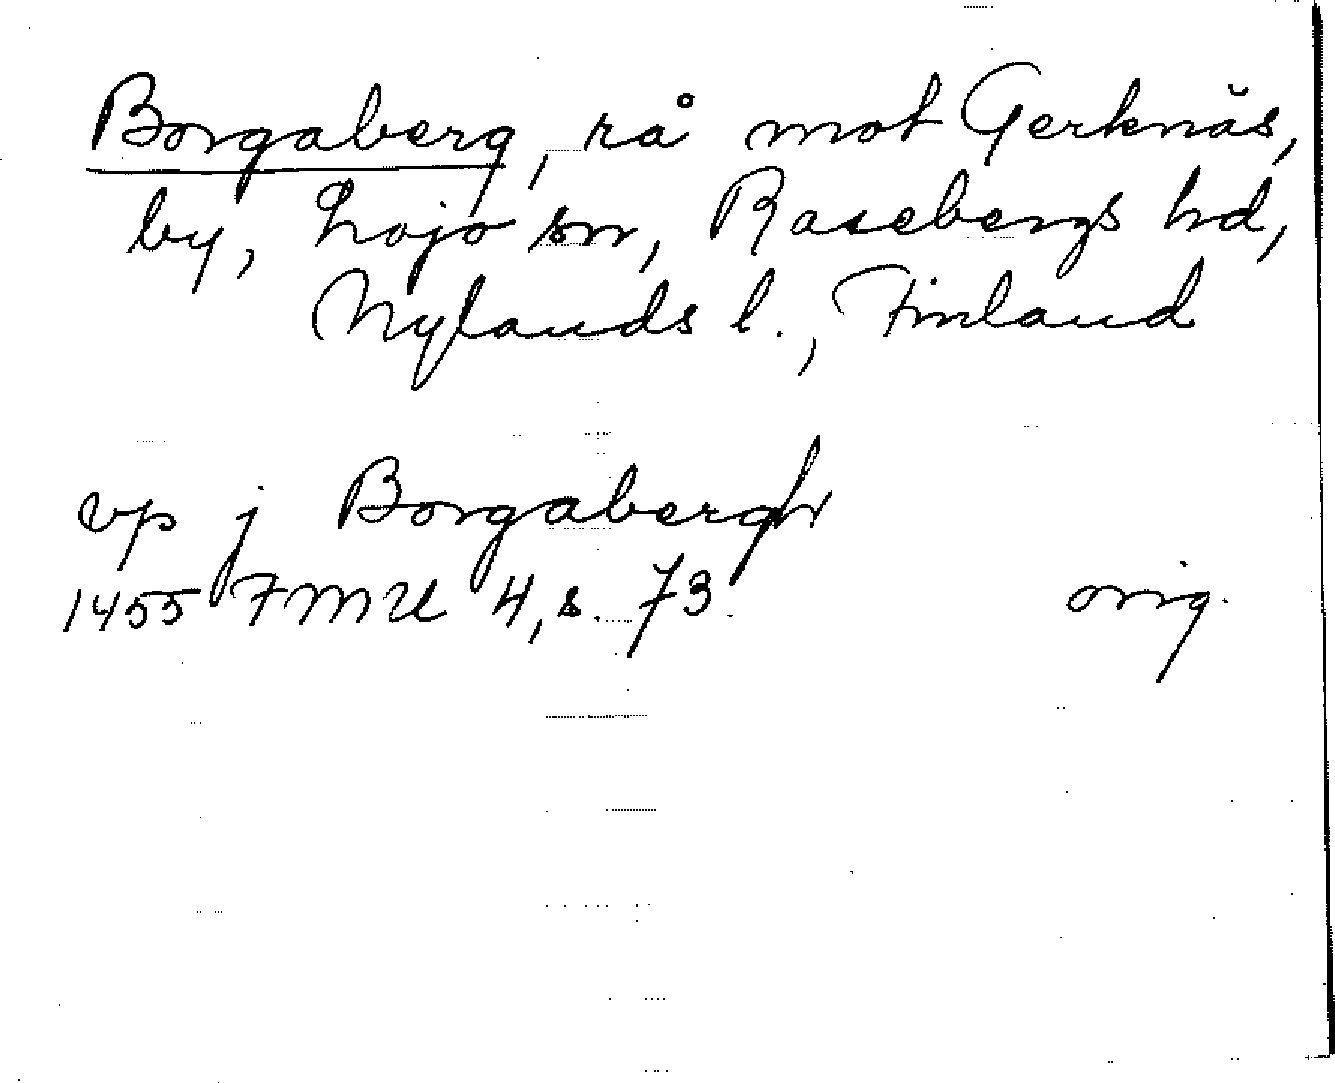 Borgaberg, rå mot Gerknäs,
by, Lojo sn, Raseborgs hd,
Nylands l., Finland
vp j Borgabergh
1455 FMU 4, s. 73 orig.